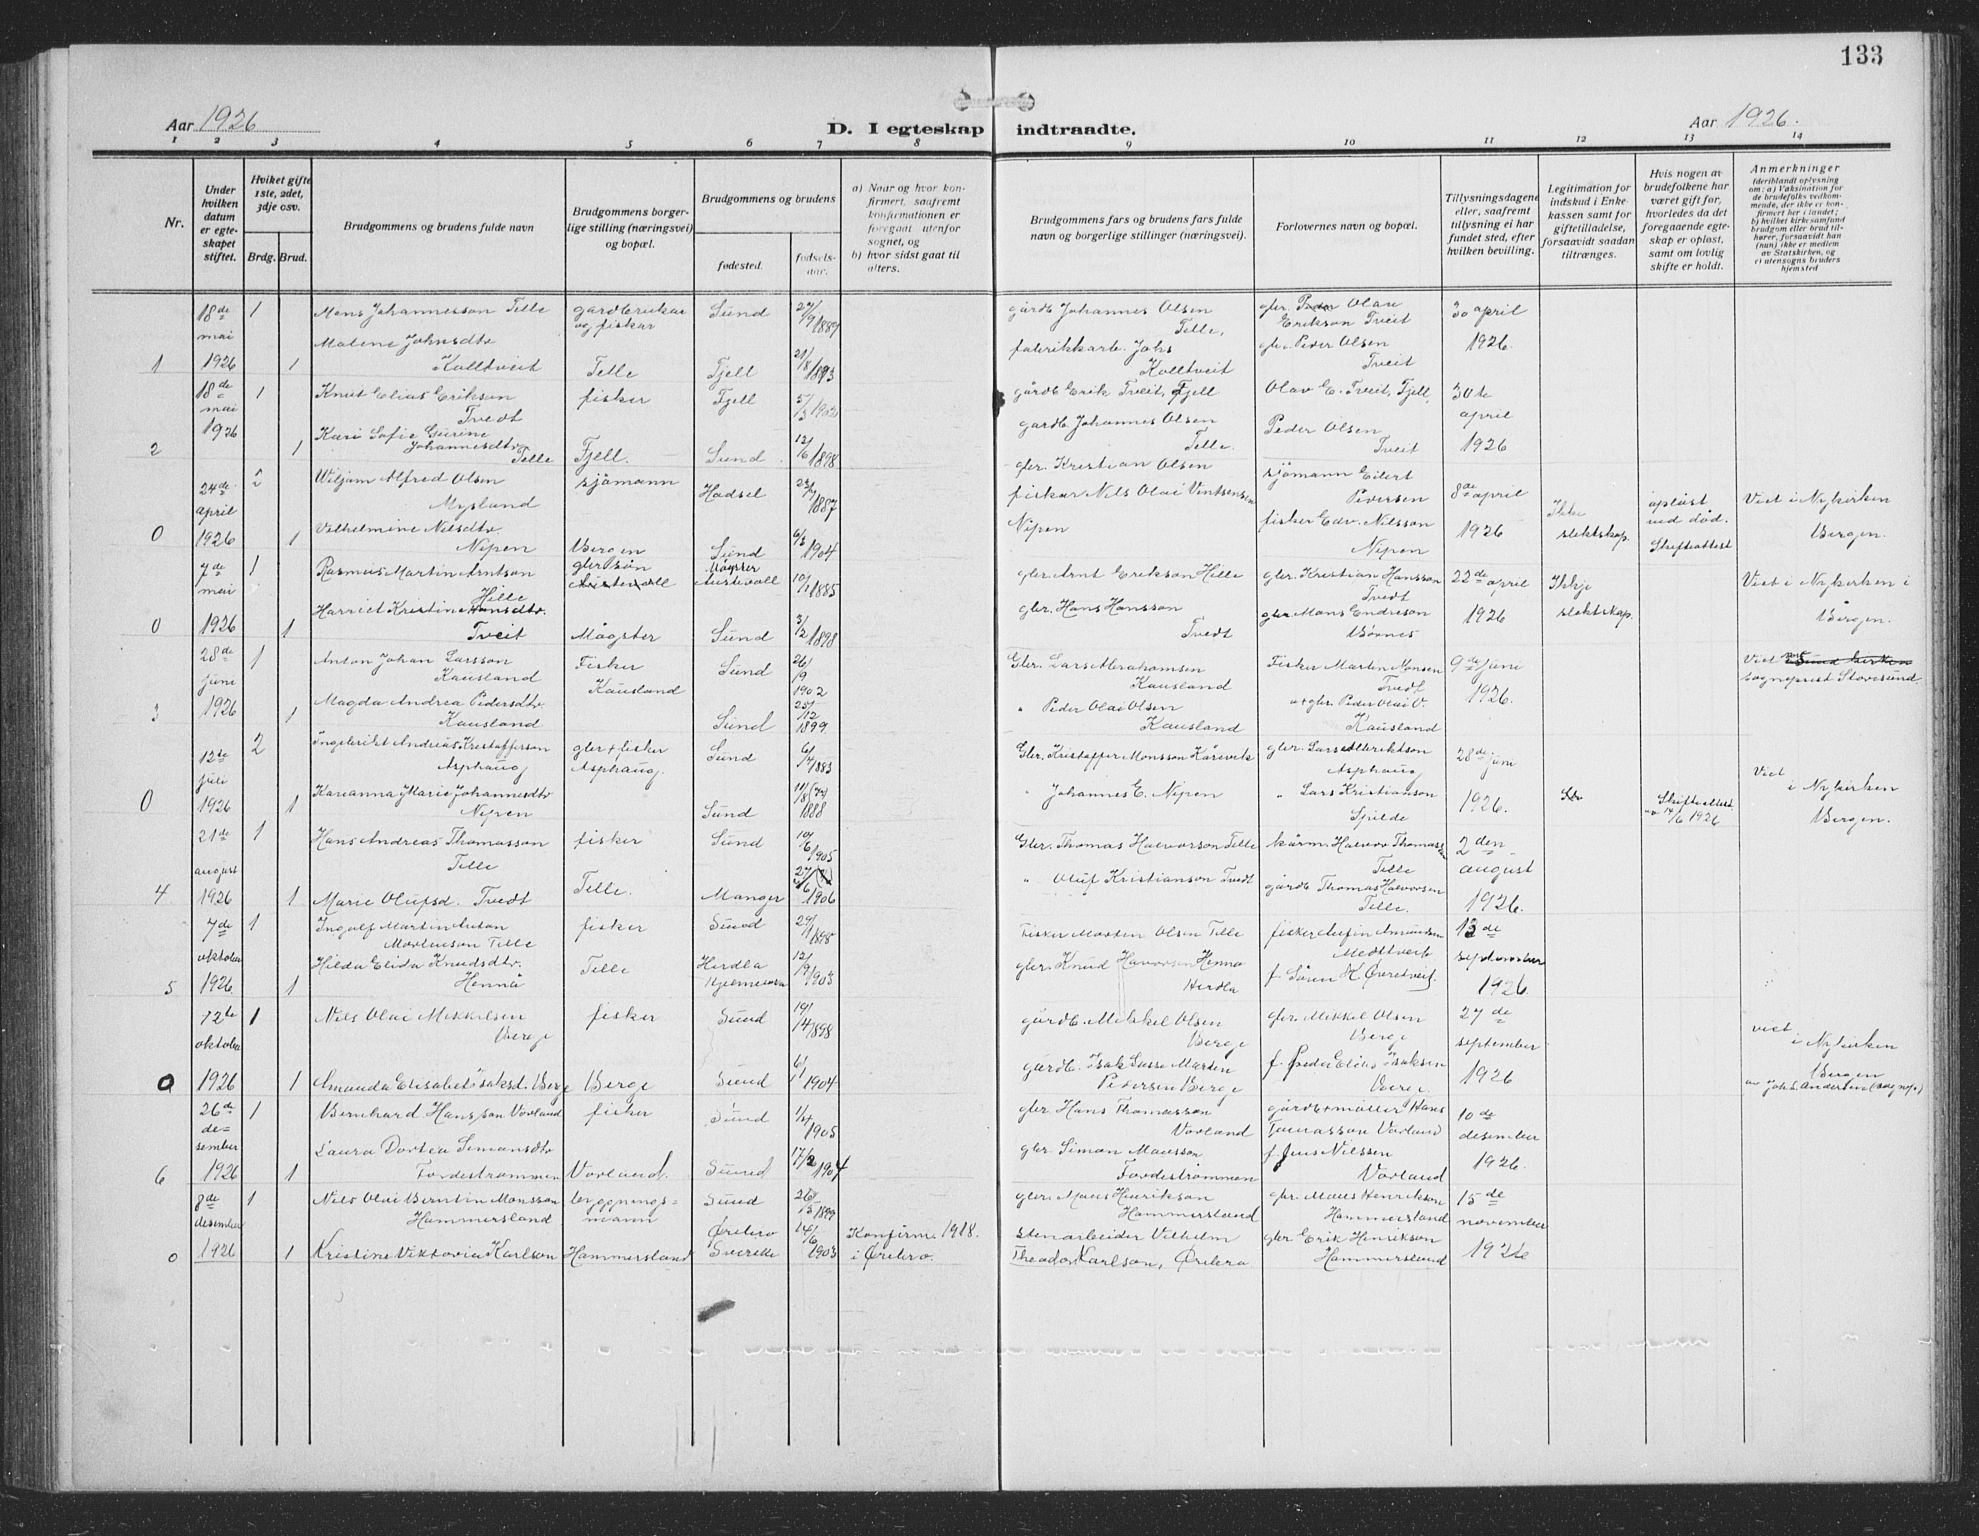 133
Aar 1926
D. I egteskap indtraadte.
Aar 1926.
1 2 3 4 5 6 7 8 9 10 11 12 13 14
Nr.
Under hvilken datum er egteskapet stiftet.
Hviket gifte 1ste, 2det, 3dje osv.
Brdg. Brud.
Brudgommens og brudens fulde navn
Brudgommens borgerlige stilling (næringsvei) og bopæl.
Brudgommens og brudens
fødested.
fødselsaar.
a) Naar og hvor konfirmert, saafremt konfirmationen er foregaat utenfor sognet, og
b) hvor sidst gaat til alters.
Brudgommens fars og brudens fars fulde navn og borgerlige stillinger (næringsvei).
Forlovernes navn og bopæl.
Tillysningsdagene eller, saafremt tillysning ei har fundet sted, efter hvilken bevilling.
Legitimation for indskud i Enkekassen samt for giftetilladelse, forsaavidt saadan tiltrænges.
Hvis nogen av brudefolkene har været gift før, hvorledes da det foregaaende egteskap er opløst, samt om lovlig skifte er holdt.
Anmerkninger
(deriblandt oplysning om: a) Vaksination for de brudefolks vedkommende, der ikke er konfirmert her i landet; b) hvilket kirkesamfund brudgom eller brud tilhører, forsaavidt han (hun) ikke er medlem av Statskirken, og c) utensogns bruders hjemsted
18de mai 1926
1
1 1
Mons Johannesson Telle
og fisker
Sund
27/9 1889
gårdb Johannes Olsen Telle,
glr. Olav Erikson Tveit
30 april 1926.
Malene Johnsdtr. Kolltveit
Telle
Fjell
21/8 1893
fabrikkarb. Johs Kolltveit
glr. Peder Olsen Tveit
18de mai 1926
2
1 1
Knut Elias Erikson Tvedt
fisker
Fjell
5/3 1902
gårdb Erik Tveit, Fjell
Olav E. Tveit, Fjell,
30te april 1926
Kari Sofie Gurine Johannesdtr. Telle
Fjell.
Sund
12/6 1898
gardb Johannes Olsen Telle
Peder Olsen Tveit
24de april 1926
0
2 1
Wiljam Alfred Olsen Mysland
sjömann
Hadsel
1887
gbr. Kristian Olsen
sjömann Eilert Iversen
8de april 1926
Ikke slektskap.
opløst ved död. Skifteattest
Viet i Nykirken Bergen.
Vilhelmine Nilsdtr. Nipen
Bergen
Sund
6/3 1904
fisker Nels Olai Vintsensen Nipen
fisker Edv. Nilsson Nipen
7de mai 1926
0
1 1
Rasmus Martin Arntson Hille
glr sön
Møgster Austevoll
10/1 1885
glr. Arnt Erikson Hille
glr. Kristian Hansson Tvedt
22de april 1926
Ikkje slektskap.
Viet i Nykirken i Bergen.
Harriet Kristine Hansdtr. Tveit
Møgster
Sund
3/2 1898
glr. Hans Hansson Tvedt
glr Mons Endreson Börnes
28de juni 1926
3
1 1
Anton Johan Larsson Kausland
Fisker Kausland
Sund
26/9 1902
Glr. Lars Abrahamsen Kausland
Fisker Martin Monsen Tvedt
9de juni 1926.
Viet sogneprest Storesund.
Magda Andrea Pedersdtr. Kausland
Sund
25/12 1899
" Peder Olai Olsen Kausland
glr. Peder Olai O. Kausland
12te juli 1926
0
2 1
Ingebrikt Andreas Kristofferson Asphaug
glr + fisker Asphaug.
Sund
6/7 1883
Glr. Kristoffer Monsson Kårevik
glr. Lars Albriktson Asphaug
28de juni 1926.
Skifteattest av 14/6 1926
Viet i Nykirken Bergen.
Karianna Marie Johannesdtr Nipen
Sund
11/8 1888
" Johannes E. Nipen
" Lars Kristianson Spilde
21de august 1926
4
1 1
Hans Andreas Thomasson Telle
fisker
Sund
10/6 1905
Glr. Thomas Halvorson Telle
Halvor Thomas Telle
2den august 1926.
Marie Olufsd. Tvedt
Telle.
Manger
1906
" Oluf Kristianson Tvedt
gårdb Thomas Halvorsen Telle.
7de oktober 1926
5
1 1
Ingolf Martin Anton Mortenson Telle
fisker
Sund
29/1 1898
Fisker Morten Olsen Telle
fisker Arfin Amundsen
13de september 1926
Hilda Elida Knudsdtr. Hennå
Telle
Herdla
12/9 1903
glr. Knud Havorsen Henna Herdla
f. Sören K. Övretveit.
12te oktober 1926
0
1 1
Nils Olai Mikkelsen Berge
fisker
Sund
1898
gårdb. Mikkel Olsen Berge
glr. Mikkel Olsen Berge
27de september 1926
viet i Nykirken Bergen
av Joh. Andersen (sognep.)
Amanda Elisabet Isaksd. Berge
Berge
Sund
6/1 1904
gårdb. Isak Lasse Martin Pedersen Berge
f. Peder Elias Isaksen Berge.
26de desember 1926
6
1 1
Bernhard Hansson Vorland
fisker
Sund
1/4 1905
glr Hans Thomasson Vorland
gårdb + møller Hans Tomasson Vorland
10de desember 1926.
Laura Dortea Simonsdtr Fordestrømmen
Vorland.
Sund
17/2 1904
glr. Simon Monsson Fordestrømmen
f. Jens Nilssen Vorland
8de desember 1926
0
1 1
Nils Olai Berntin Monsson Hammersland
bryggningsmann
Sund
26/3 1899
glr. Mons Henrikson Hammersland
glr. Mons Henrikson Hammersland
15de november 1926
Kristine Viktoria Karlson
Hammersland
Örebro Sverike
14/6 1903
Konfirm. 1918. i Örebro.
Stenarbeider Vilhelm Theodor Karlson, Örebro
glr. Erik Henrikson Hammersland